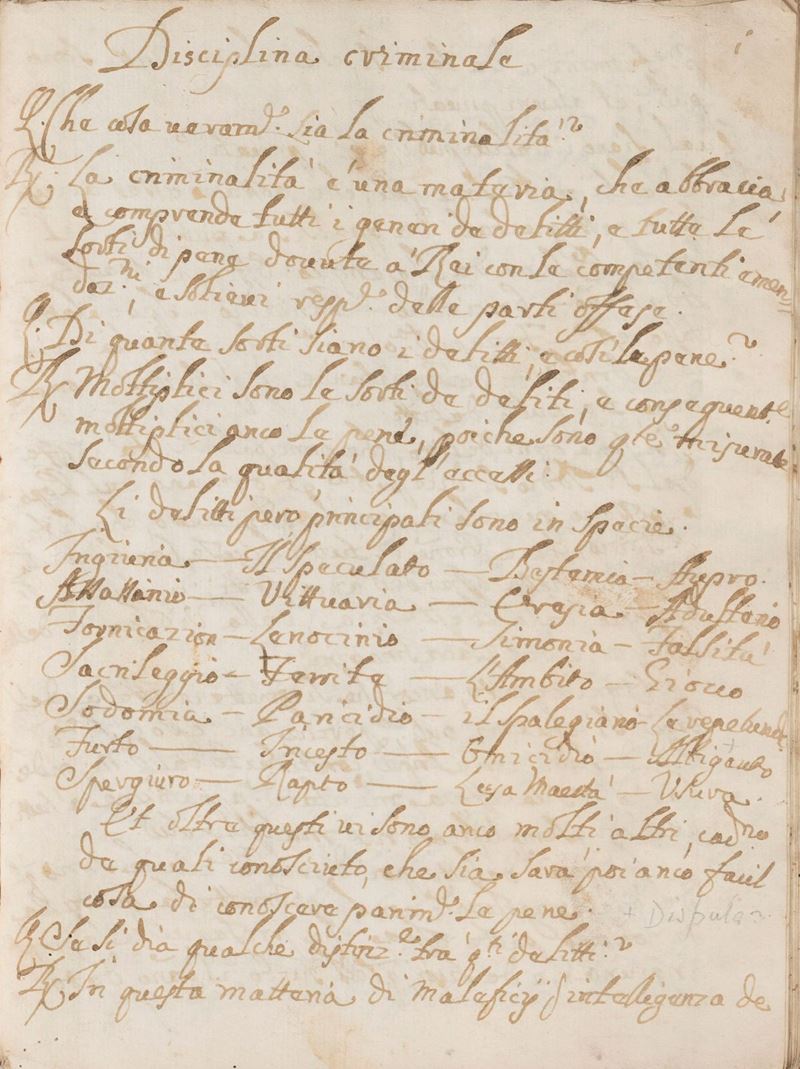 Disciplina criminale
Q. Che cosa veramte. sia la criminalità?
Rx. La criminalità è una materia, che abbraccia,
e comprende tutti i generi de delitti, e tutte le
sorti di pene dovute a' Rei con le competenti emen=
daz.ni, e solievi respte. delle parti offese.
Q. Di quante sorti siano i delitti, e così le pene?
Rx Moltiplici sono le sorti de deliti, e conseguente
moltiplici anco le pene, poiche sono qte. misurate
secondo la qualità degl' eccessi.
Li delitti però principali sono in specie.
Ingiuria — Il Peculato — Bestemia — Stupro.
Assassinio — Vettuaria — Eresia — Adulterio
Fornicazion — Lenocinio — Simonia — Falsità
Sacrileggio — Ferite — L'Ambito — Giocco
Sodomia — Paricidio — il Spalegiano — Le repetunde
Furto — Incesto — Omicidio — Abigeato
Spergiuro — Rapto — Lesa Maestà — Usura.
Et oltre questi vi sono anco molti altri, cadno
de quali conosciuto, che sia sarà poi anco facil
cosa di conoscere parimte. le pene.
Q. Se si dia qualche distinze. trà qti delitti?
Rx In questa matteria di Maleficij intelligenza de